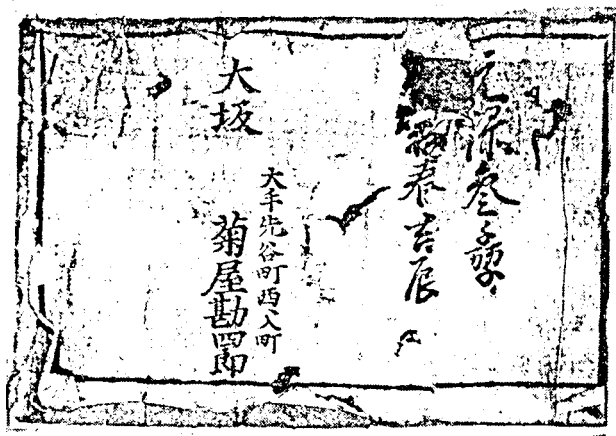 元禄叁
春吉辰
大坂
大手先谷町西入町
菊屋勘四郎